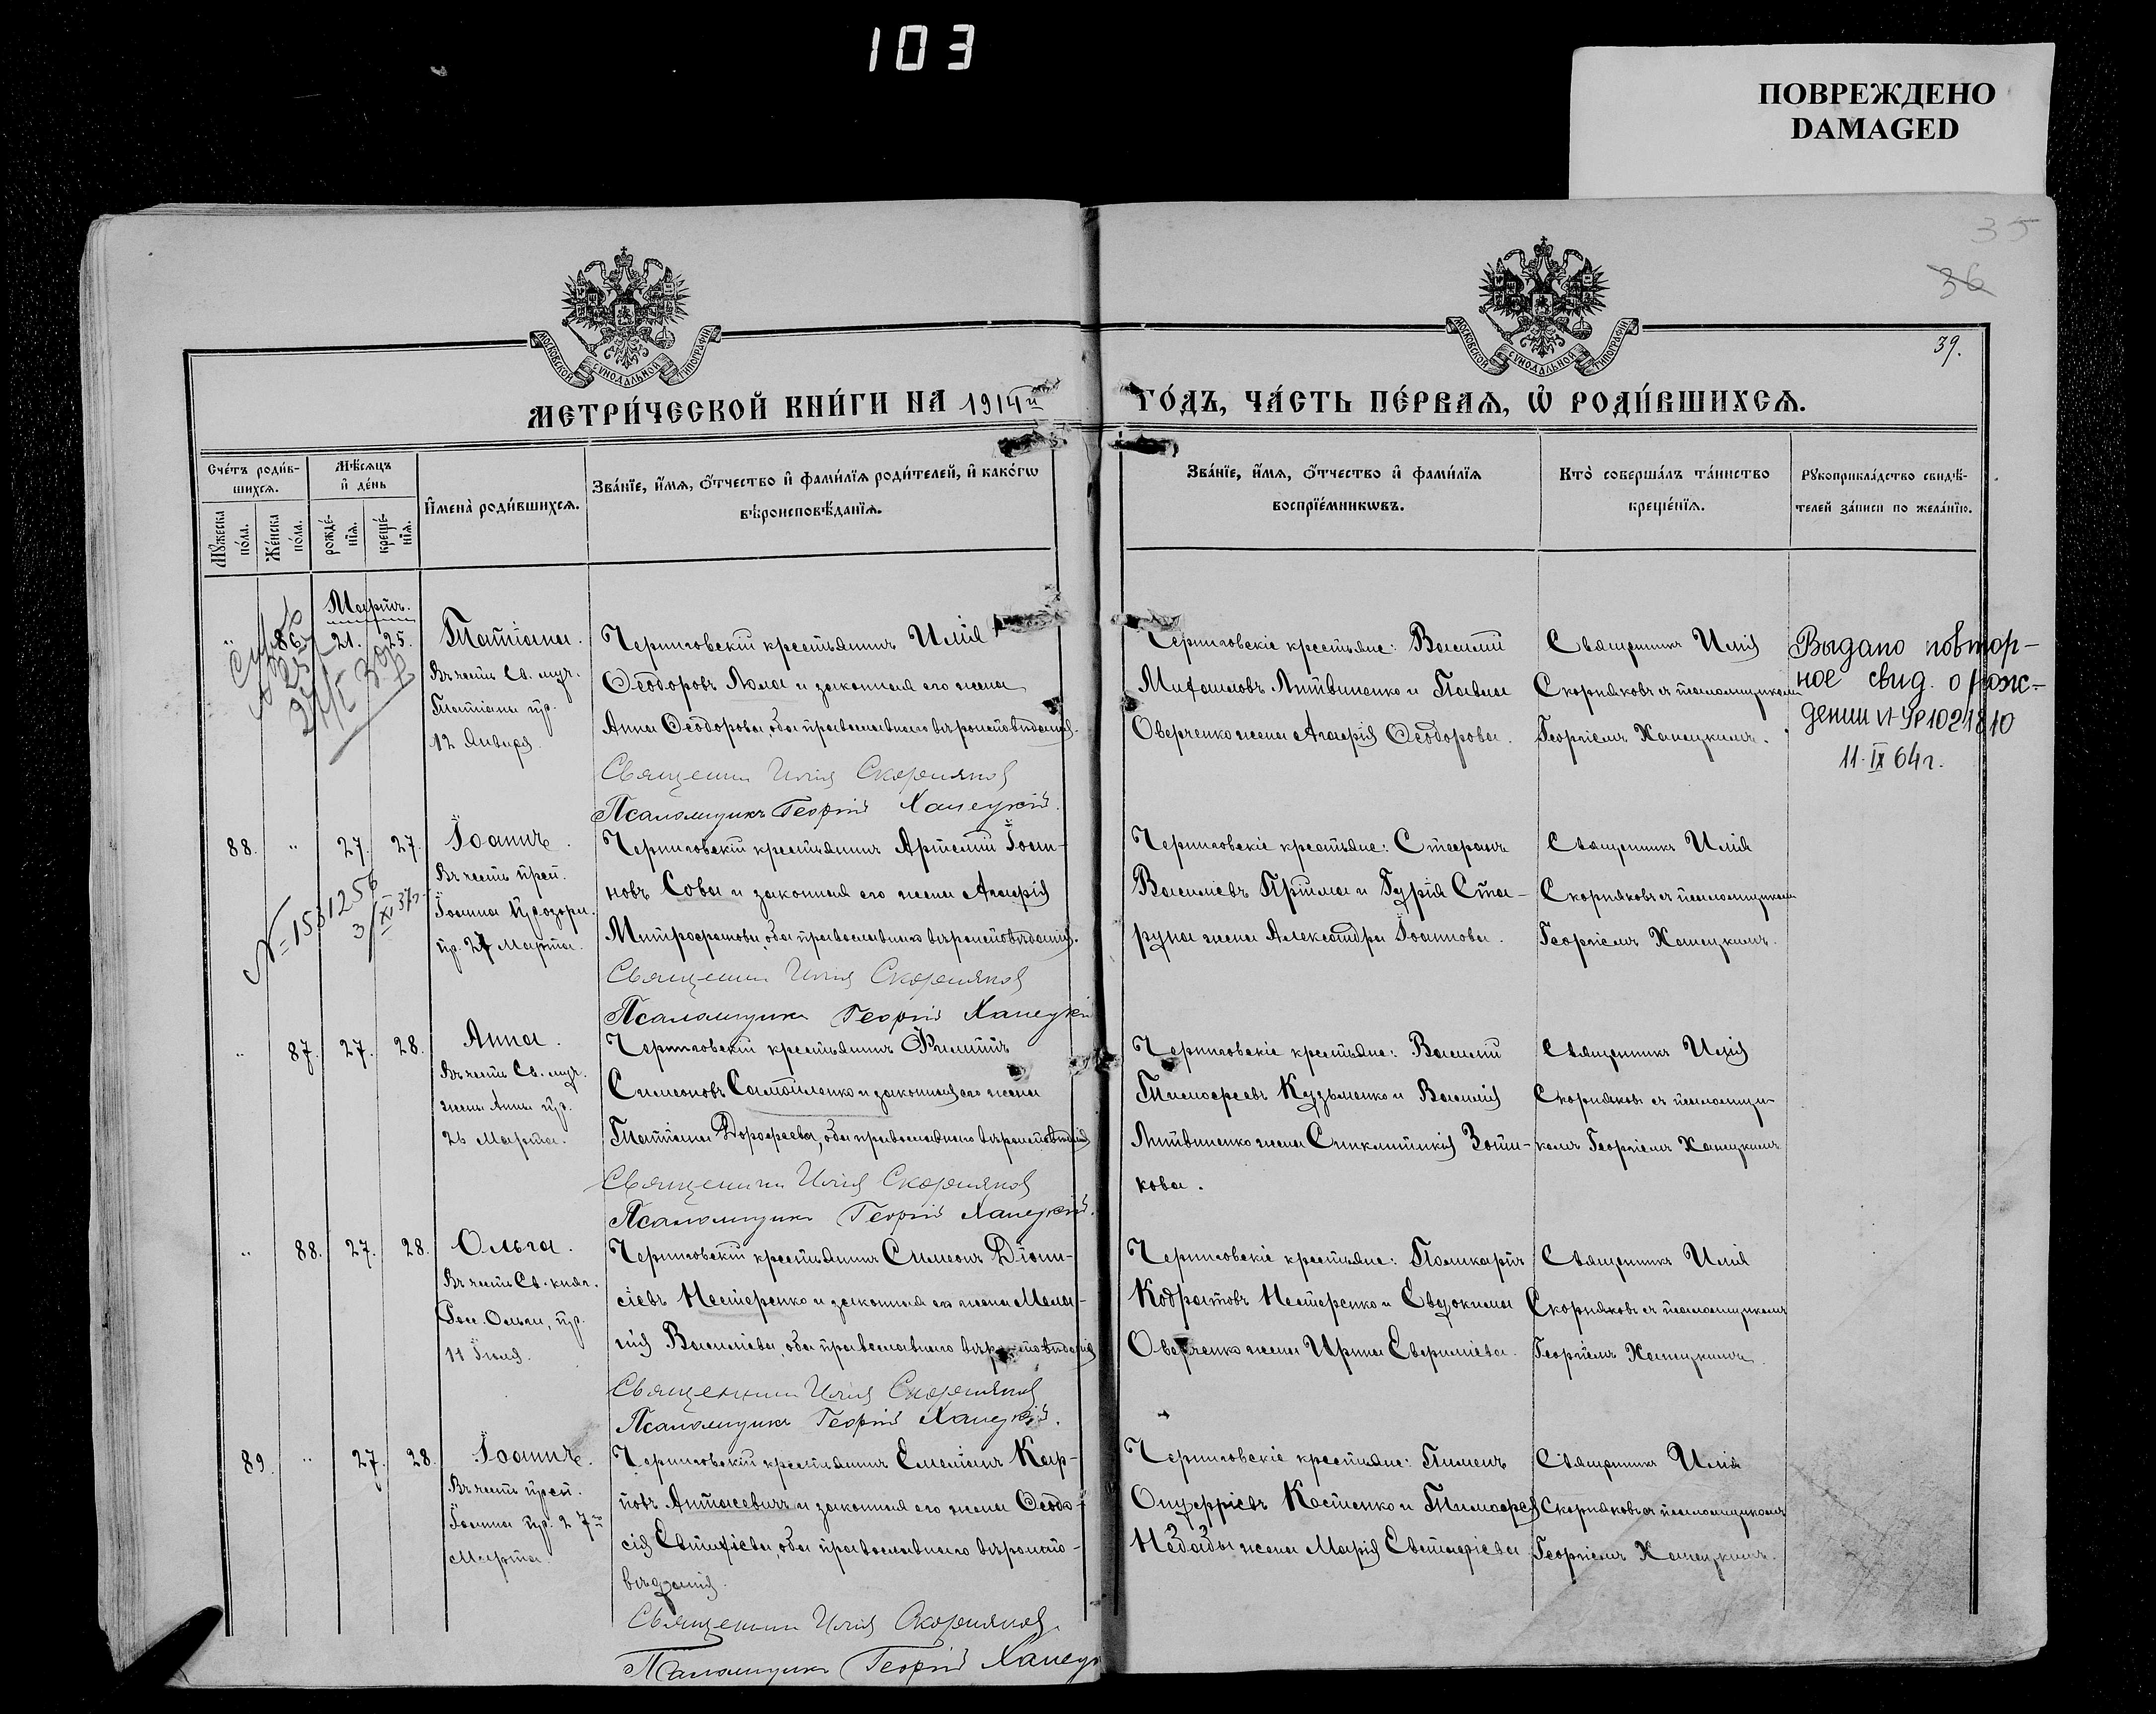 103
ПОВРЕЖДЕНО
DAMAGED
35
36
39.
МОСКОВСКОЙ СѴНОДАЛЬНОЙ ТИПОГРАФІИ
МОСКОВСКОЙ СѴНОДАЛЬНОЙ ТИПОГРАФІИ
МЕТРИ́ЧЕСКОЙ КНИ́ГИ НА 1914й
ГО́ДЪ, ЧА́СТЬ ПЕ́РВАѦ, Ѡ҆ РОДИ́ВШИХСѦ.
Сче́тъ роди́в-
шихсѧ.
Мꙋ́жеска
по́ла.
Же́нска
по́ла.
Мѣ́сѧцъ
и҆ де́нь
рожде́-
нїѧ.
креще́-
нїѧ.
И҆мена̀ роди́вшихсѧ.
Зва́нїе, и҆́мѧ, ѻ҆́тчество и҆ фами́лїѧ роди́телей, и҆ како́гѡ
вѣроисповѣ́данїѧ.
Зва́нїе, и҆́мѧ, ѻ҆́тчество и҆ фами́лїѧ
воспрїе́мникѡвъ.
Кто̀ соверша́лъ та́инство
креще́нїѧ.
Рꙋкоприкла́дство свидѣ́-
телей за́писи по жела́нїю.
Мартъ.
86. 21. 25.
Татіана.
Въ честь Св. муч.
Татіаны пр.
12 Января.
Черниговскій крестьянинъ Илія
Ѳеодоровъ Лола и законная его жена
Анна Ѳеодорова, оба православнаго вѣроисповѣданія.
Священникъ Илія Скорняковъ
Псаломщикъ Георгій Ханецкій.
Черниговскіе крестьяне: Василій
Михаиловъ Литвиненко и Павла
Оверченко жена Агаѳія Ѳеодорова.
Священникъ Илія
Скорняковъ съ псаломщикомъ
Георгіемъ Ханецкимъ.
Выдано повтор-
ное свид. о рож-
дении VI-УР 1021810
11.IX 64г.
88. " 27. 27.
№ 1531256
3/XI 37г.
Іоаннъ.
Въ честь преп.
Іоанна Прозорл.
пр. 27 Марта.
Черниговскій крестьянинъ Артемій Іоан-
новъ Сова и законная его жена Агаѳія
Митрофанова, оба православнаго вѣроисповѣданія.
Священникъ Илія Скорняковъ
Псаломщикъ Георгій Ханецкій
Черниговскіе крестьяне: Стефанъ
Василіевъ Пріима и Гурія Ста-
руна жена Александра Іоаннова.
Священникъ Илія
Скорняковъ съ псаломщикомъ
Георгіемъ Ханецкимъ.
" 87. 27. 28.
Анна.
Въ честь Св. муч.
жены Анны пр.
26 Марта.
Черниговскій крестьянинъ Филиппъ
Симеоновъ Самойленко и законная его жена
Татіана Дороѳеева, оба православнаго вѣроисповѣданія
Священникъ Илія Скорняковъ
Псаломщикъ Георгій Ханецкій.
Черниговскіе крестьяне: Василій
Тимоѳеевъ Кузьменко и Василія
Литвиненко жена Синклитикія Зоти-
кова.
Священникъ Илія
Скорняковъ съ псаломщи-
комъ Георгіемъ Ханецкимъ
" 88. 27. 28.
Ольга.
Въ честь Св. княг.
Рос. Ольги, пр.
11 Іюля.
Черниговскій крестьянинъ Симеонъ Діони-
сіевъ Нестеренко и законная его жена Мела-
нія Василіева, оба православнаго вѣроисповѣданія
Священникъ Илія Скорняковъ
Псаломщикъ Георгій Ханецкій.
Черниговскіе крестьяне: Поликарпъ
Кодратовъ Нестеренко и Евдокима
Оверченко жена Ирина
Священникъ Илія
Скорняковъ съ псаломщикомъ
Георгіемъ Ханецкимъ.
89. " 27. 28.
Іоаннъ.
Въ честь преп.
Іоанна пр. 27го
Марта.
Черниговскій крестьянинъ Емеліанъ Кар-
повъ Антасевичъ и законная его жена Ѳеодо-
сія Евтихіева, оба православнаго вѣроиспо-
вѣданія.
Священникъ Илія Скорняковъ
Псаломщикъ Георгій Ханец
Черниговскіе крестьяне: Пименъ
Онуфріевъ Костенко и Тимоѳея
Недайды жена Марія Евстафіева
Священникъ Илія
Скорняковъ съ псаломщикомъ
Георгіемъ Ханецкимъ.